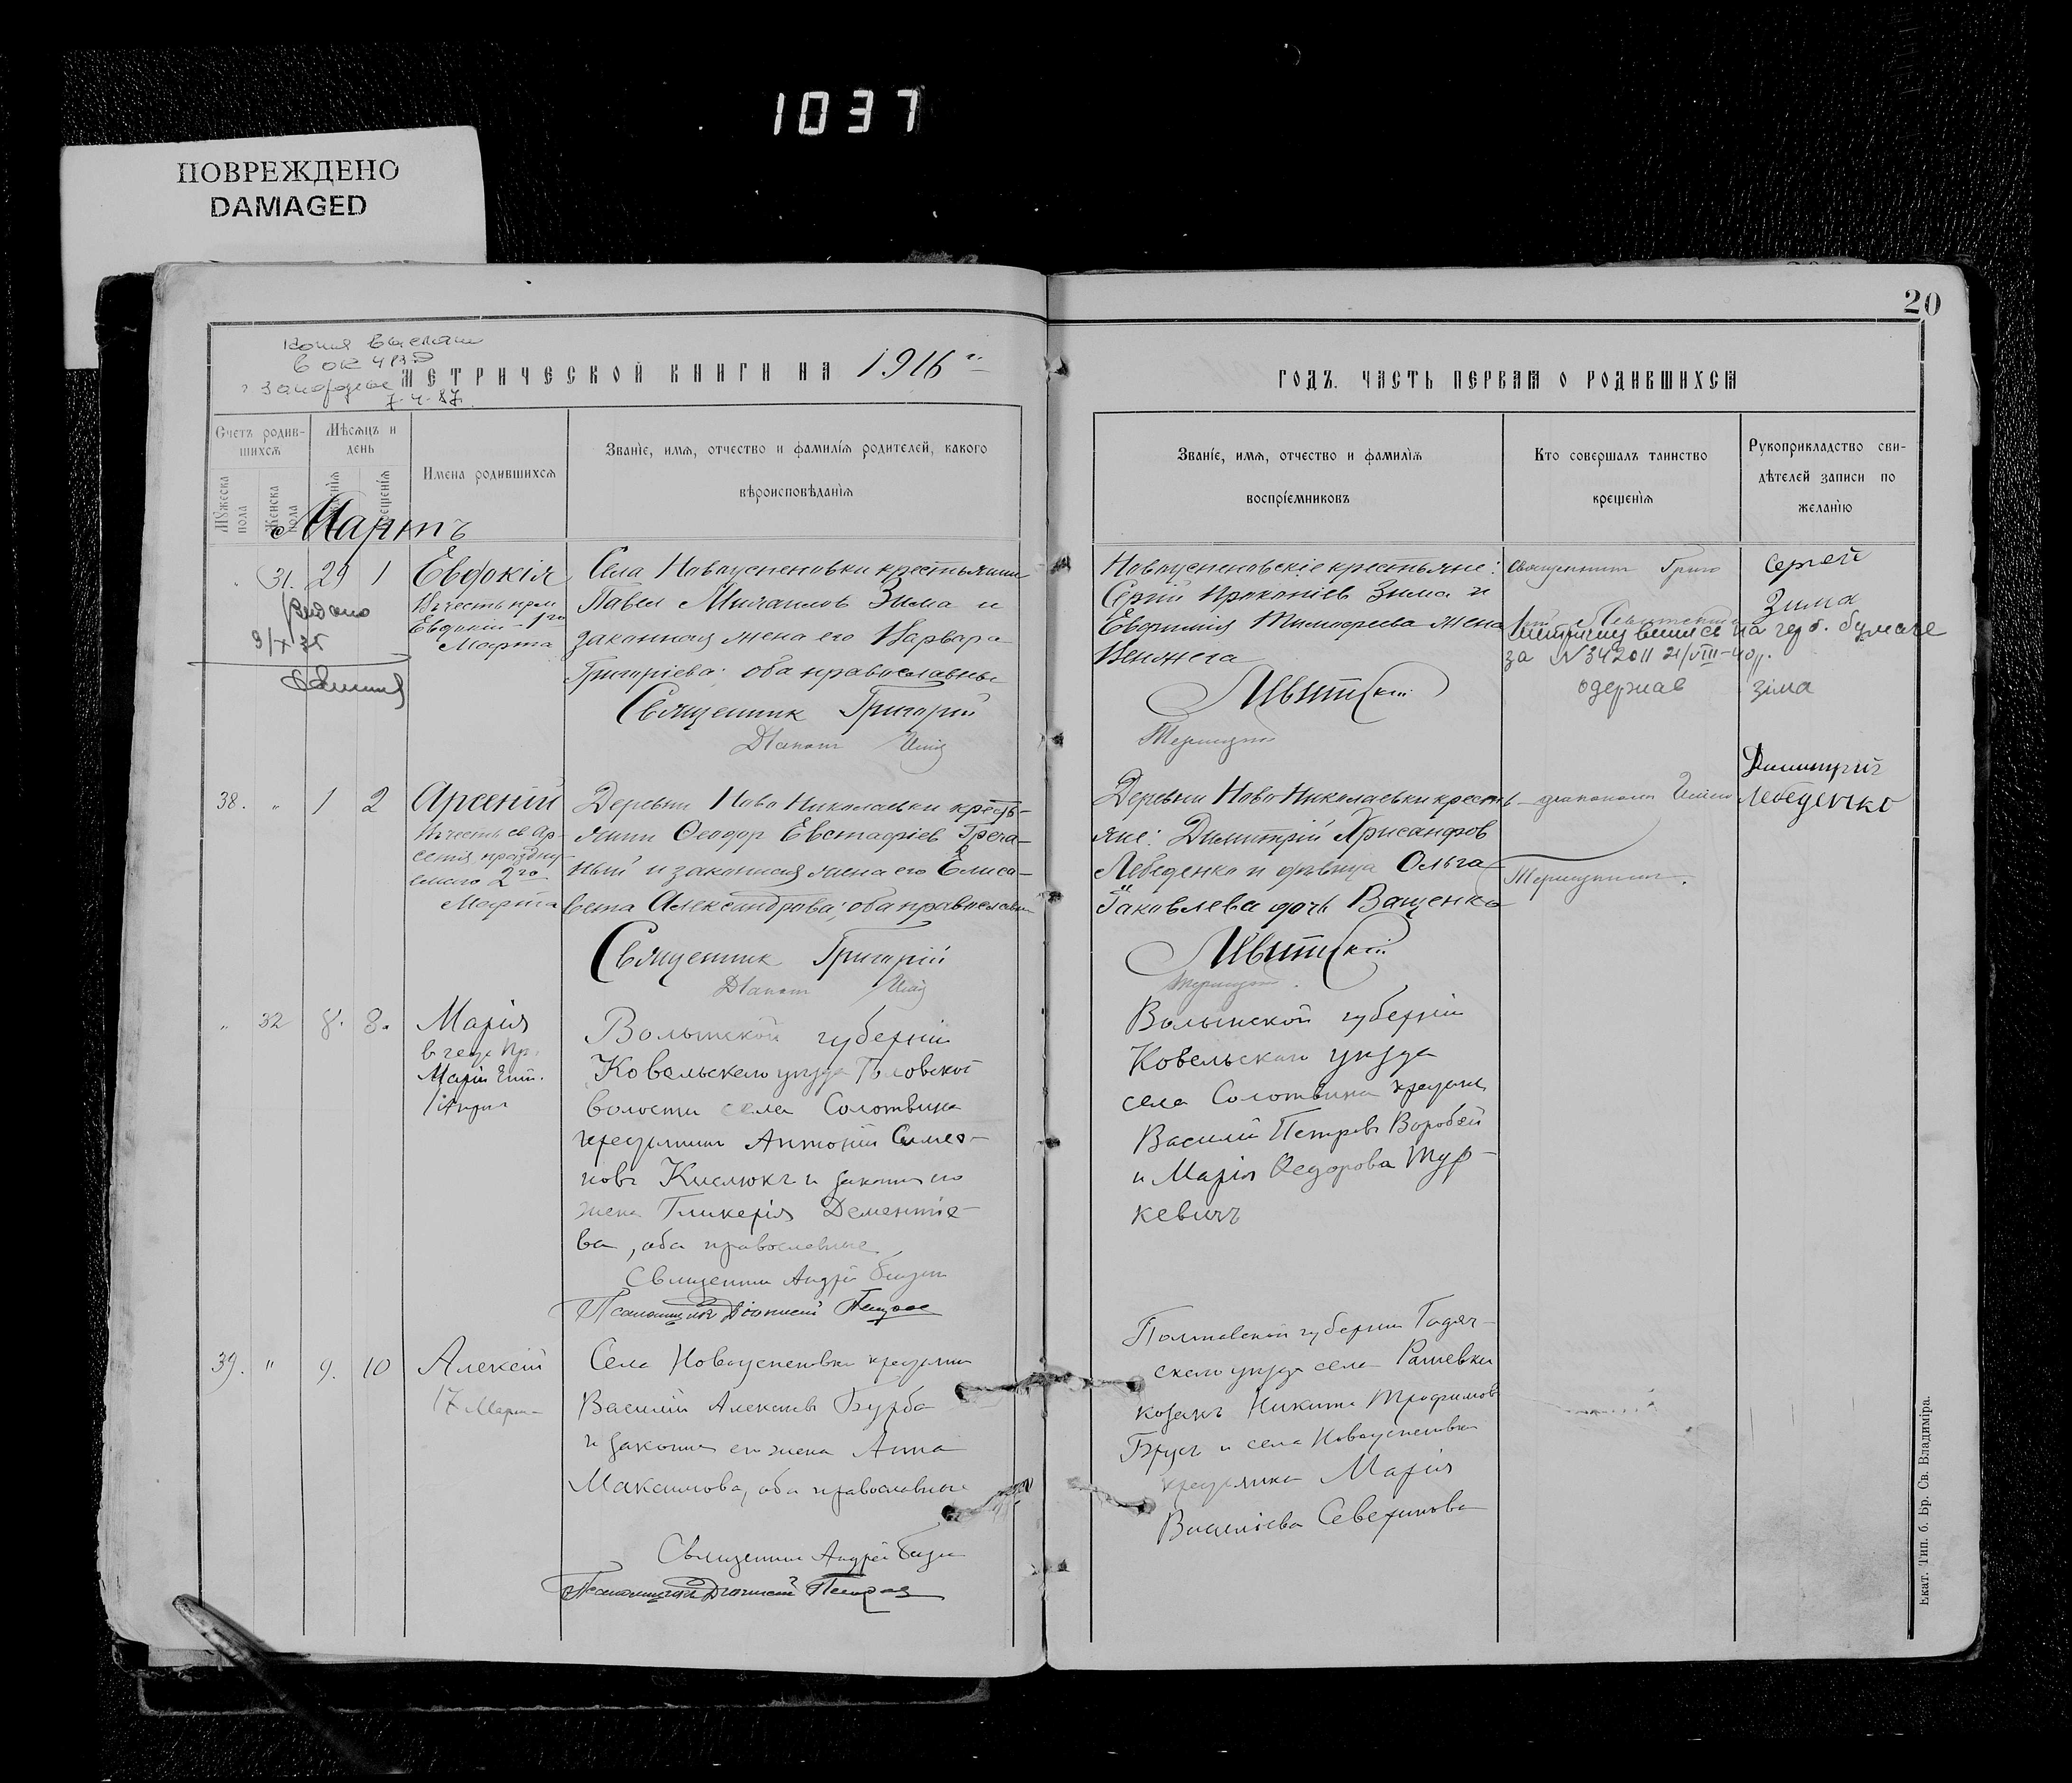 1037
ПОВРЕЖДЕНО
DAMAGED
20
в ОК
7-4-87
МЕТРИЧЕСКОЙ КНИГИ НА 1916
ГОДЪ. ЧАСТЬ ПЕРВАЯ О РОДИВШИХСЯ
Счетъ родив-
шихся
Мужеска пола
Женска пола
Мѣсяцъ и
день
Имена родившихся
Званіе, имя, отчество и фамилія родителей, какого
вѣроисповѣданія
Званіе, имя, отчество и фамилія
воспріемниковъ
Кто совершалъ таинство
крещенія
Рукоприкладство сви-
дѣтелей записи по
желанію
Мартъ
31. 29 1
Евдокія
Въ честь
Евдокіи - 1го
Марта
Села Новоуспеновки крестьянинъ
Павел Михаилов Зима и
законная жена его Варвара
Григоріева; оба православны
Священник Григорій
Новоуспеновскіе крестьяне:
Сергій Прокопіев Зима и
Евфимия Тимофеева жена
Священник Григо
Сергей
Зима
на герб. бумаге
за N 342011 21/VIII-40
одержав зіма
38. " 1 2
Арсеній
Въ честь св Ар-
сенія, праздну-
емаго 2го
Марта
Деревни Ново Николаевки кресть-
янин Феодор Евстафіев Греча-
ный и законная жена его Елиса-
вета Александрова; оба православны
Священник Григорій
Деревни Ново Николаевки кресть-
яне: Димитрій Хрисанфов
Лебеденко и дѣвица Ольга
Іаковлева дочь Ващенко
Димитрий
Лебеденко
" 32 8. 8.
Марія
Волынской губерніи
Ковельскаго уѣзда
волости села Солотвина
Антоній Симео-
новъ Кислюкъ и законн его
жена Гликерія Дементіе-
ва, оба православные
Священник Андрей
Псаломщикъ Діонисій Петров
Волынской губерніи
Ковельскаго уѣзда
села Солотвина
Василій Петровъ Воробей
и Марія Федорова Тур-
кевичъ
39. " 9. 10
Алексій
17 Марта
Села Новоуспеновки
Василій Алексѣевъ Бурба
и законная его жена Анна
Максимова, оба православные
Священник Андрей
Псаломщикъ Діонисій Петров
Полтавской губерніи Гадяч-
скаго уѣзда села Рашевки
козакъ Никита Трофимов
и села Новоуспеновки
Марія
Василіева Северинова
Екат. Тип. б. Бр. Св. Владиміра.